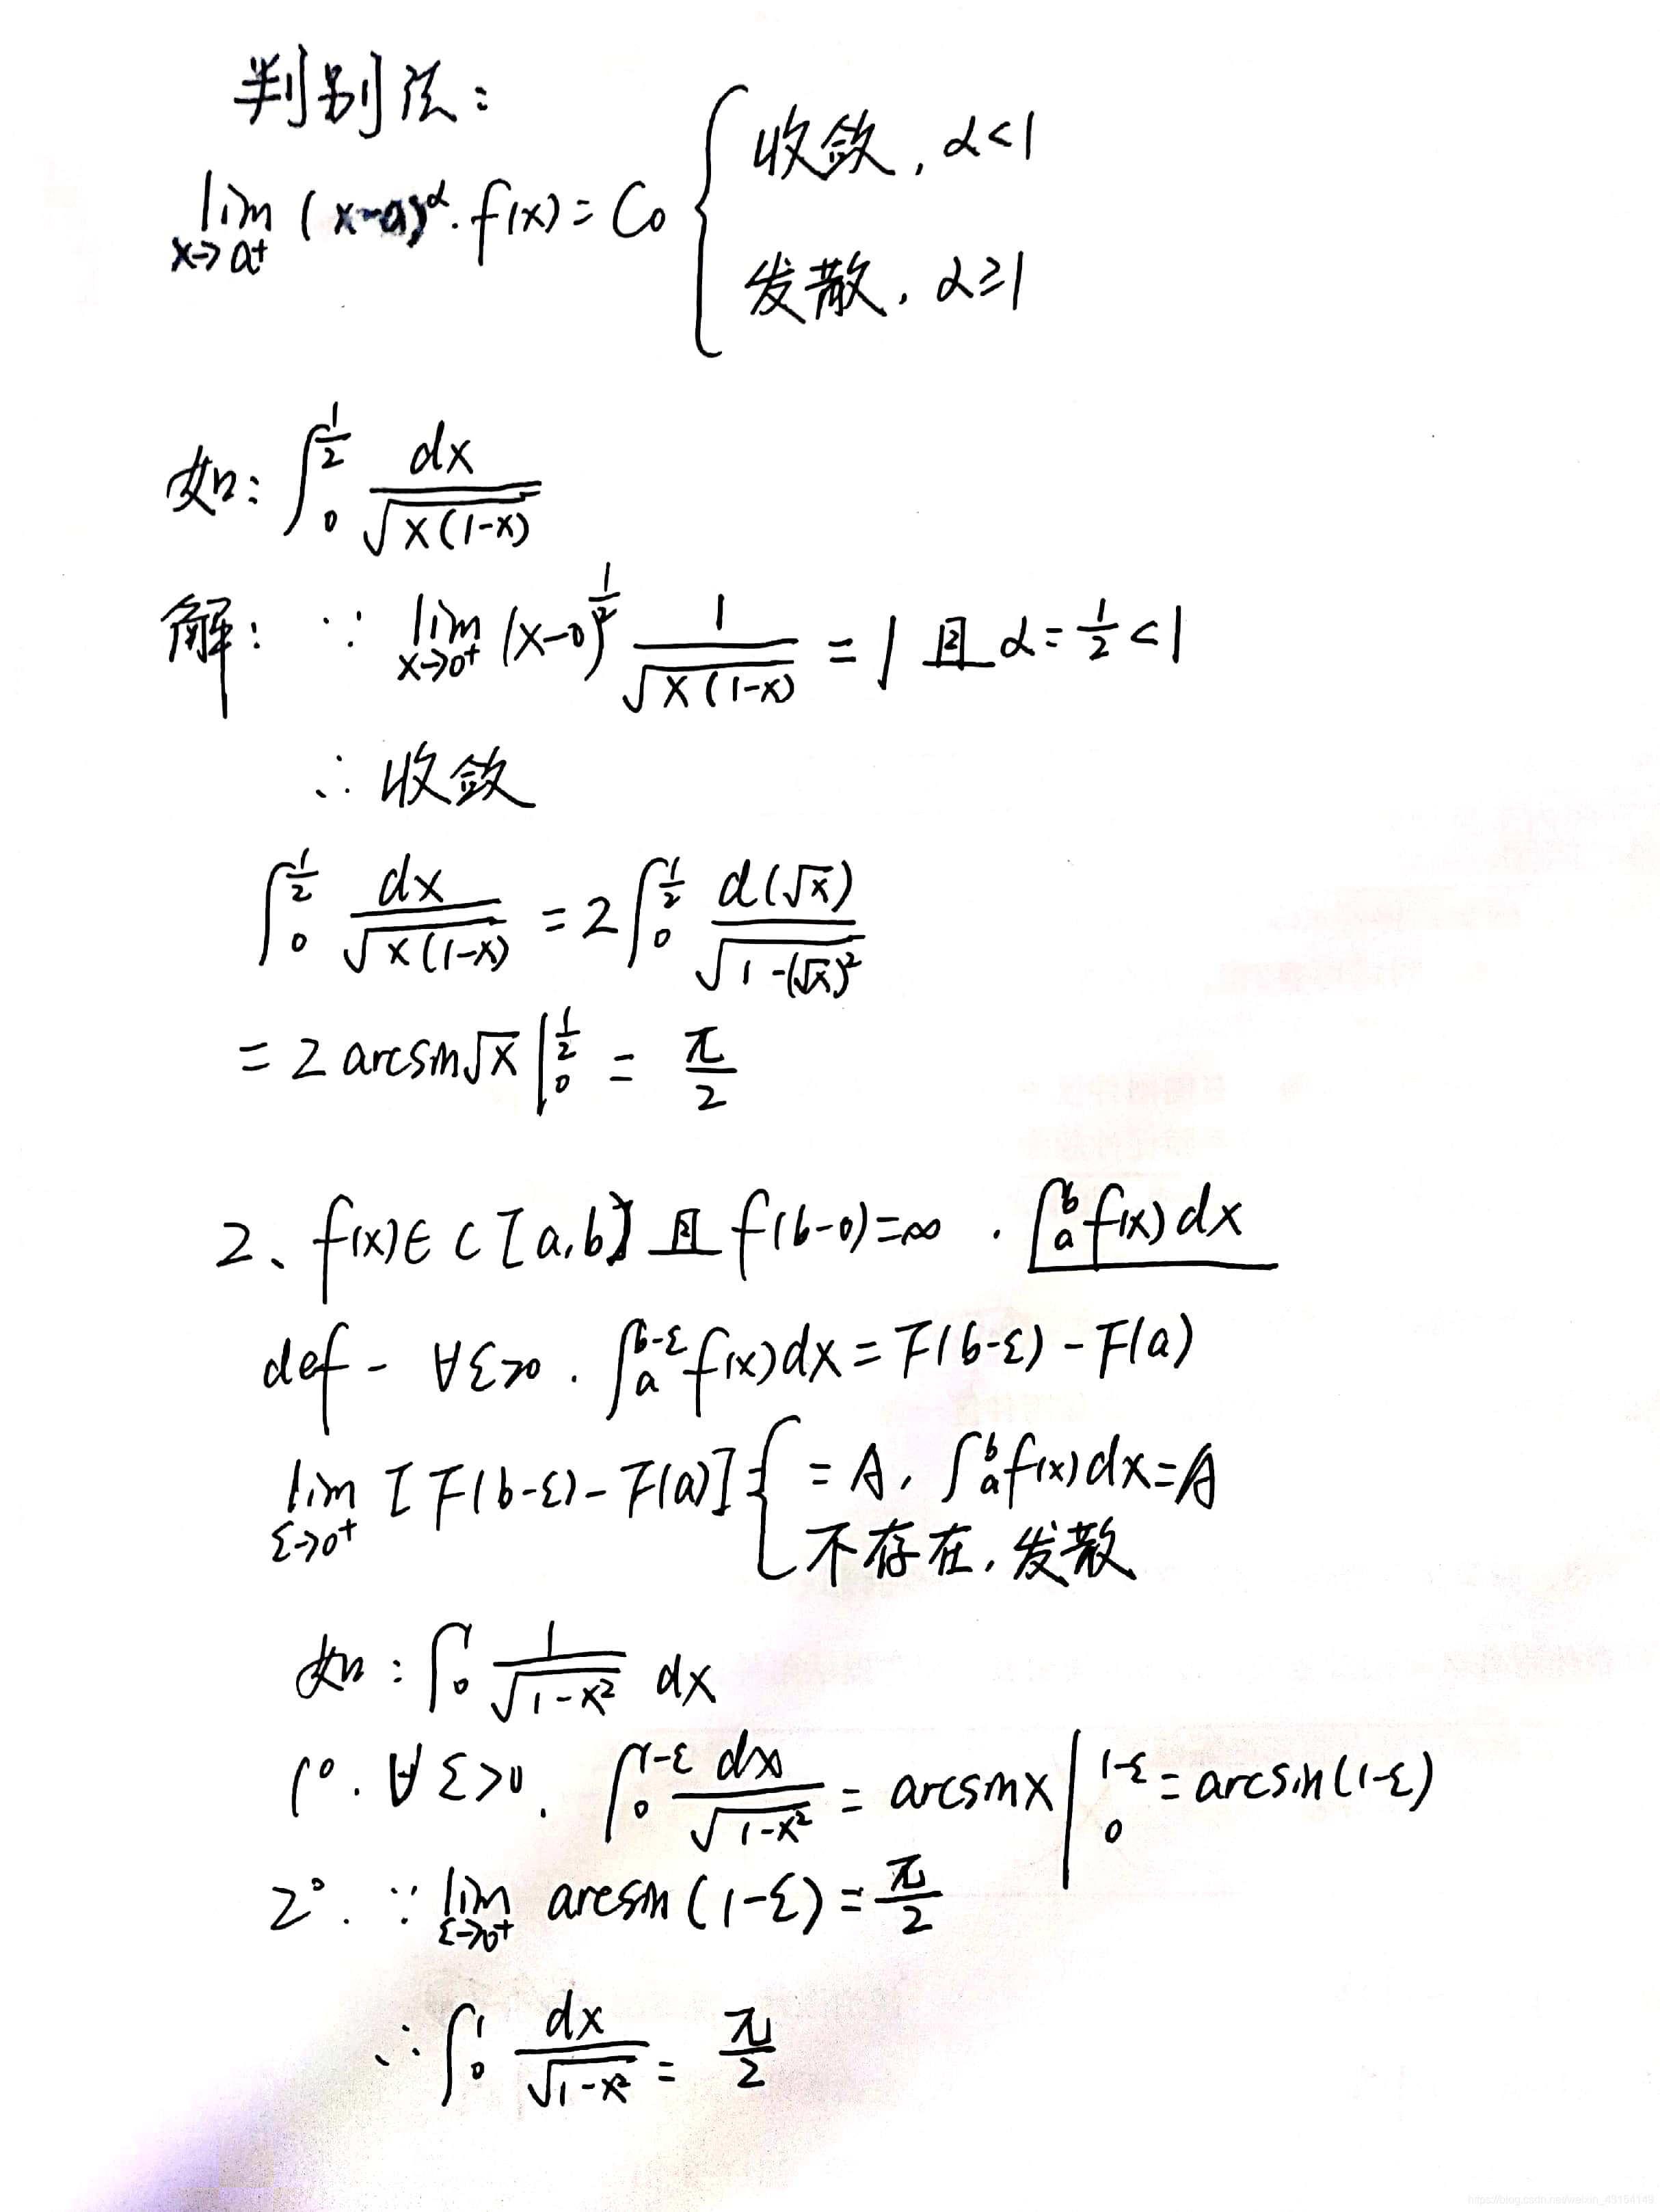 判别法:
lim (x-a)^α · f(x) = C₀ { 收敛, α<1
x→a⁺ 发散, α≥1
如: ∫₀^{1/2} dx/√(x(1-x))
解: ∵ lim_{x→0⁺} (x-0)^{1/2} 1/√(x(1-x)) = 1 且 α = 1/2 < 1
∴ 收敛
∫₀^{1/2} dx/√(x(1-x)) = 2∫₀^{1/2} d(√x)/√(1-(√x)²)
= 2 arcsin√x |₀^{1/2} = π/2
2、f(x)∈C[a,b) 且 f(b-0)=∞ . ∫ₐᵇ f(x)dx
def - ∀ε>0 . ∫ₐ^{b-ε} f(x)dx = F(b-ε) - F(a)
lim_{ε→0⁺} [F(b-ε) - F(a)] { = A, ∫ₐᵇ f(x)dx = A
不存在, 发散
如: ∫₀¹ 1/√(1-x²) dx
1°. ∀ε>0. ∫₀^{1-ε} dx/√(1-x²) = arcsinx |₀^{1-ε} = arcsin(1-ε)
2°. ∵ lim_{ε→0⁺} arcsin(1-ε) = π/2
∴ ∫₀¹ dx/√(1-x²) = π/2
https://blog.csdn.net/weixin_43154149